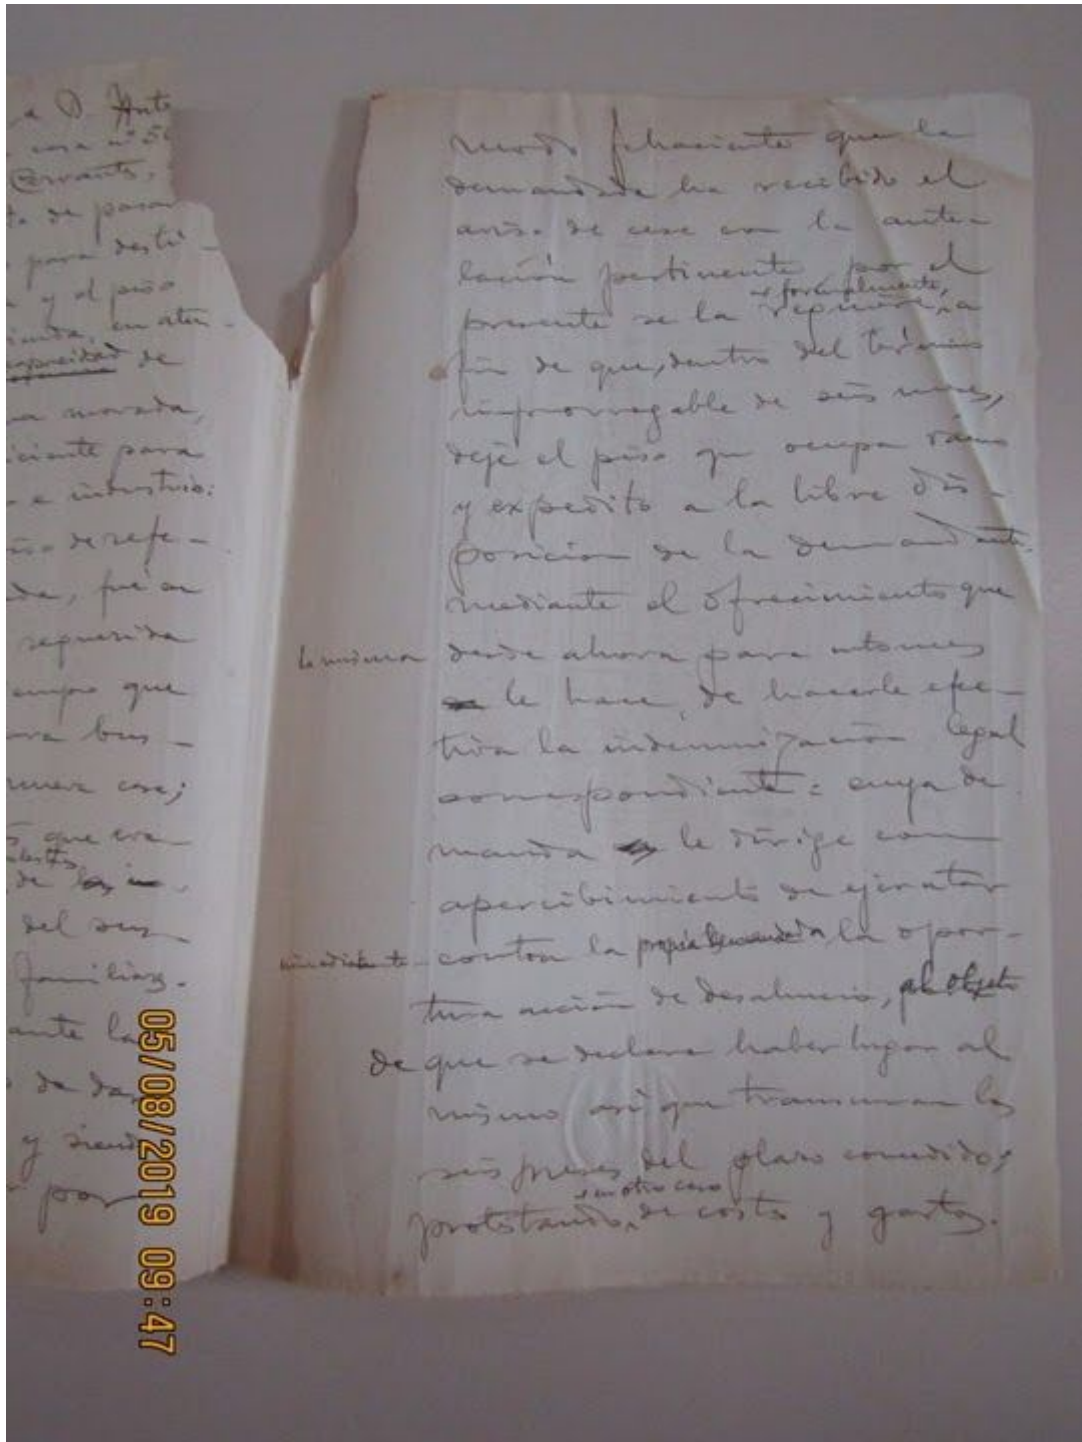 a D. Anto
casa nº 54
Cervantes,
de pasa
para desti-
y el piso
vivienda, en aten-
capacidad de
morada,
iciente para
e industria:
piso de refe-
da, fué en
requerida
empo que
ra bus-
nueva casa;
que era
de
del seu
familias.
ante la
de dar
y siendo
por
modo fehaciente que la
demandada ha recibido el
aviso de cese con la ante-
lación pertinente por el
formalmente,
presente se la requiere, a
fin de que, dentro del término
improrrogable de seis meses,
deje el piso que ocupa vacuo
y expedito a la libre dis-
posición de la demandante
mediante el ofrecimiento que
la misma desde ahora para entonces
le hace, de hacerle efec-
tiva la indemnización legal
correspondiente: cuya de
manda le dirige con
apercibimiento de ejercitar
contra la propia demandada, la opor-
tuna acción de desahucio, al objeto
de que se declare haber lugar al
mismo así que transcurran los
seis meses del plazo concedido;
en otro caso
protestando, de costas y gastos.
05/08/2019 09:47